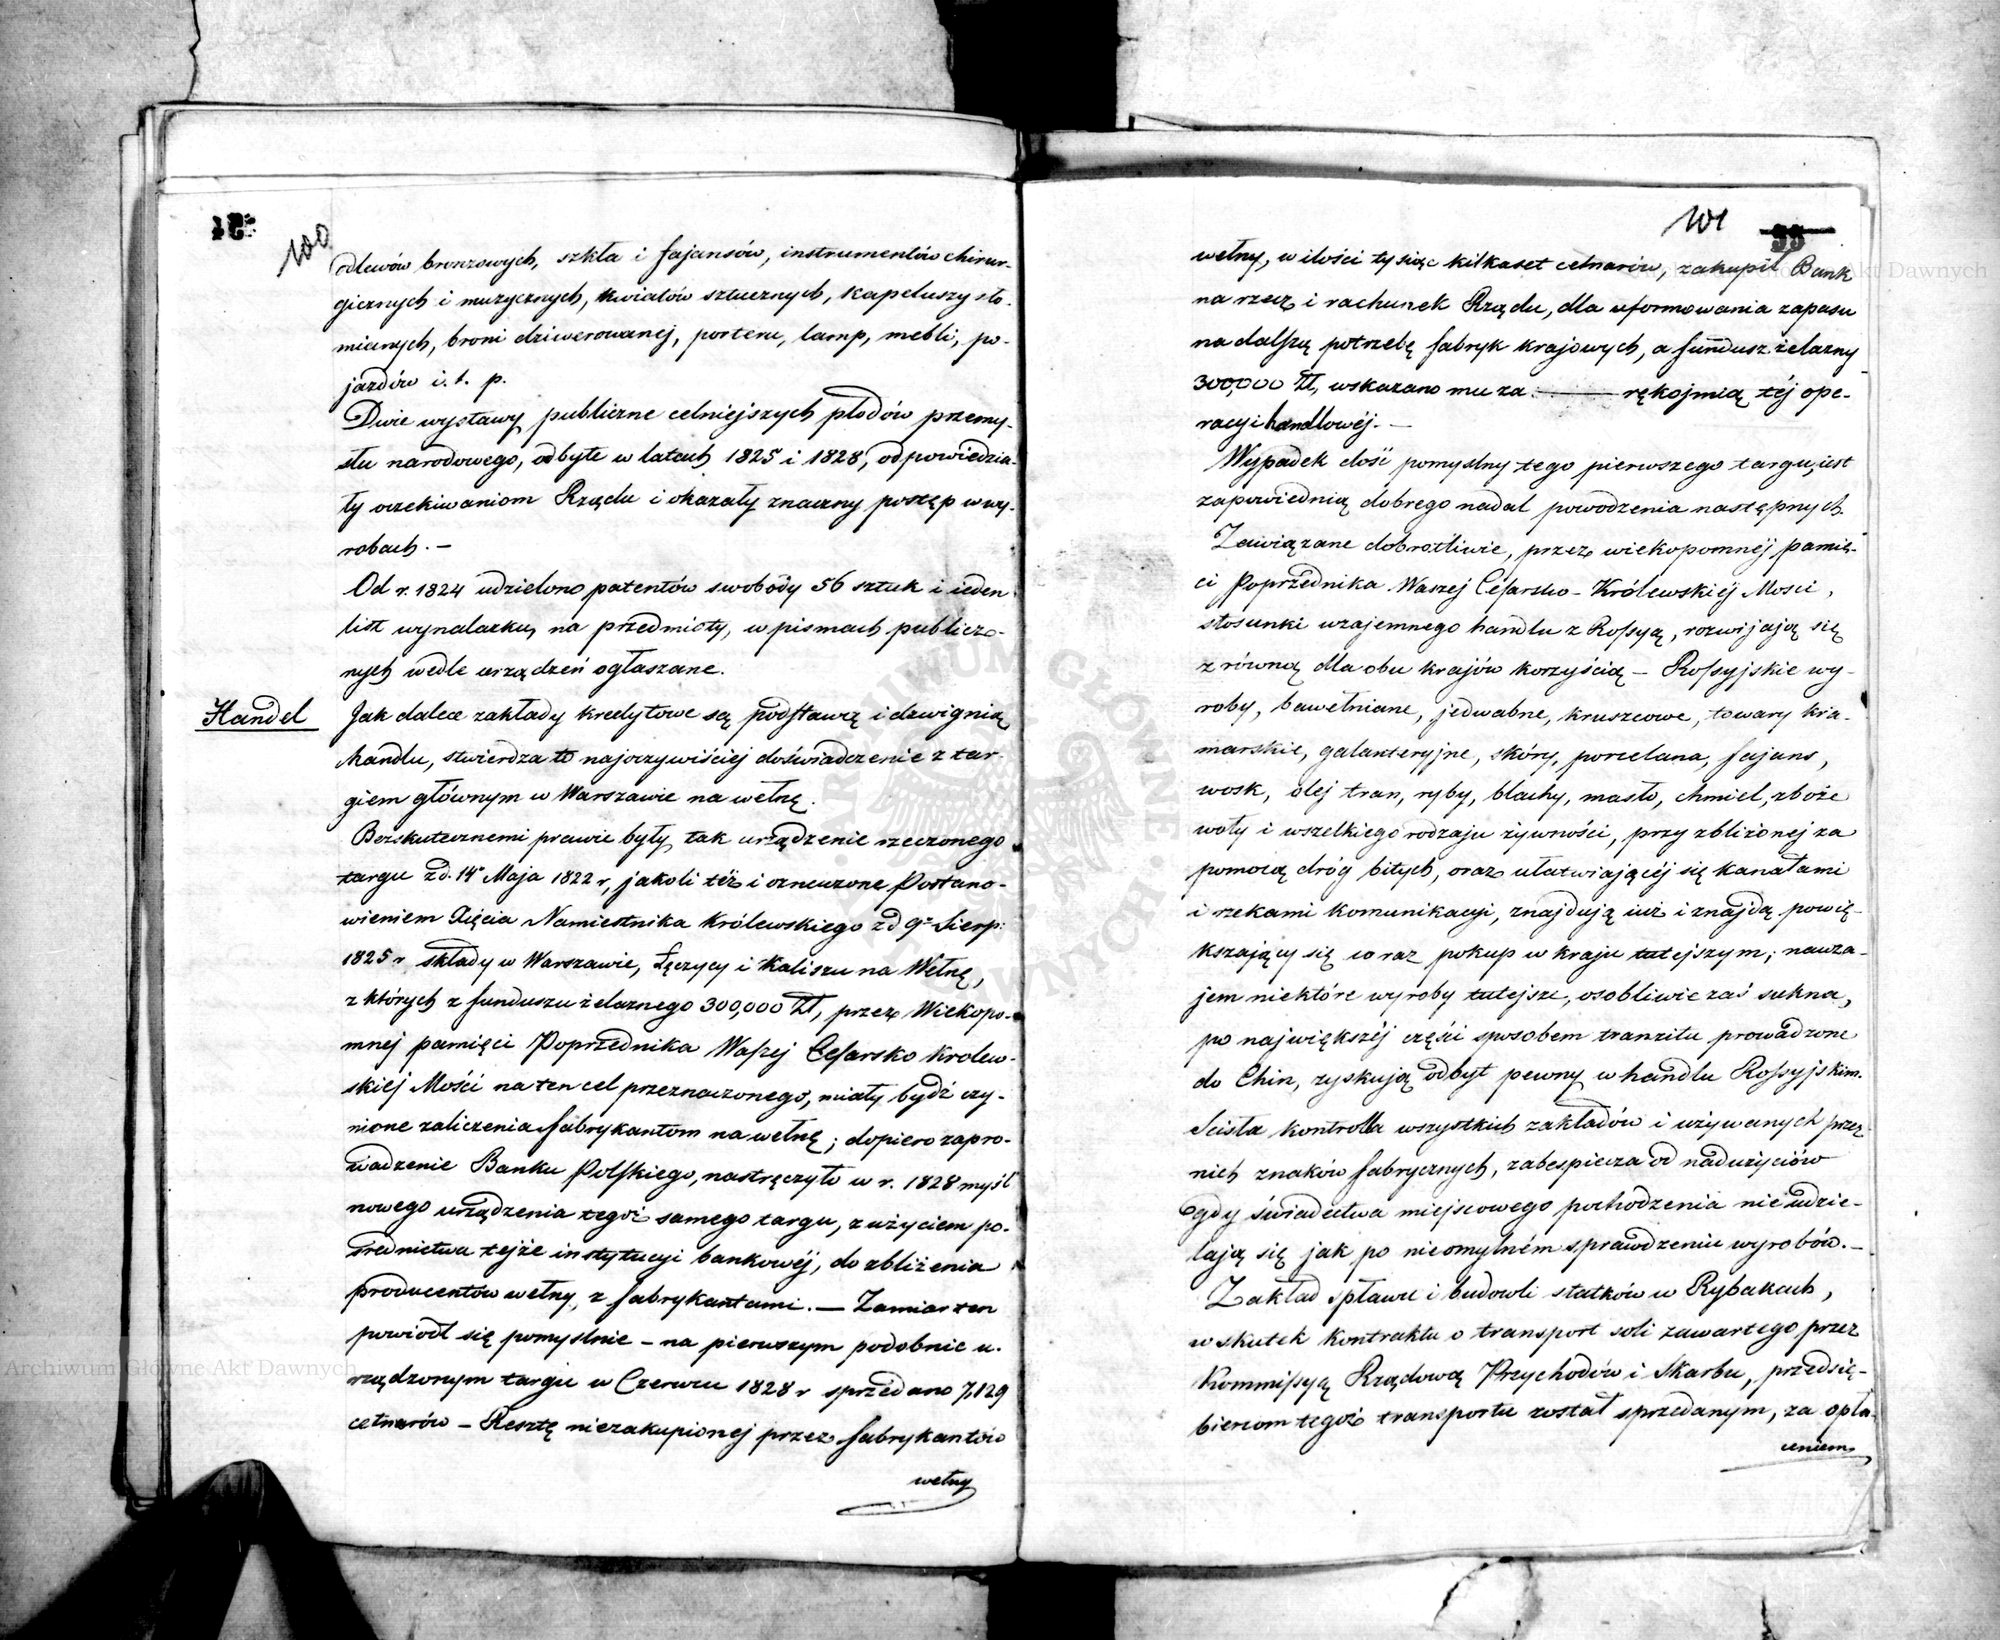 100
odlewów bronzowych, szkła i fajansów, instrumentów chirur-
gicznych i muzycznych, kwiatów sztucznych, kapeluszy sło-
mianych, broni dziwerowanej, porteru, lamp, mebli, po-
jazdów i. t. p.
Dwie wystawy publiczne celniejszych płodów przemy-
słu narodowego, odbyte w latach 1825 i 1828, odpowiedzia-
ły oczekiwaniom Rządu i okazały znaczny postęp w wy-
robach. —
Od r. 1824 udzielono patentów swobody 56 sztuk i ieden
list wynalazku, na przedmioty, w pismach publicz-
nych wedle urządzeń ogłaszane.
Handel
Jak dalece zakłady kredytowe są podstawą i dźwignią
handlu, stwierdza to najoczywiściej doświadczenie z tar-
giem głównym w Warszawie na wełnę.
Bezskutecznemi prawie były, tak urządzenie rzeczonego
targu z d. 14 Maja 1822 r, jakoli też i oznaczone Postano-
wieniem Xięcia Namiestnika Królewskiego z d 9 Sierp:
1825 r składy w Warszawie, Łęczycy i Kaliszu na Wełnę,
z których z funduszu żelaznego 300,000 Zł, przez Wiekopo-
mnej pamięci Poprzednika Waszej Cesarsko Krolew-
skiej Mości na ten cel przeznaczonego, miały bydź czy-
nione zaliczenia fabrykantom na wełnę; dopiero zapro-
wadzenie Banku Polskiego, nastręczyło w r. 1828 myśl
nowego urządzenia tegoż samego targu, z użyciem po-
średnictwa tejże instytucyi bankowéj, do zbliżenia
producentów wełny, z fabrykantami. — Zamiar ten
powiodł się pomyslnie — na pierwszym podobnie u-
rządzonym targu w Czerwcu 1828 r sprzedano 7,129
cetnarów — Resztę niezakupionej przez fabrykantów
wełny
101
35
wełny, w ilości tysiąc kilkaset cetnarów, zakupił Bank
na rzecz i rachunek Rządu, dla uformowania zapasu
na dalszą potrzebę fabryk krajowych, a fundusz żelazny
300,000 Zł, wskazano mu za — rękojmią téj ope-
racyi handlowéj. —
Wypadek dość pomyslny tego pierwszego targu, iest
zapowiednią dobrego nadal powodzenia następnych.
Zawiązane dobrotliwie, przez wiekopomnéj pamię-
ci Poprzednika Waszej Cesarsko-Królewskiéj Mosci,
stosunki wzajemnego handlu z Rossyą, rozwijają się
z równą dla obu krajów korzyścią — Rossyjskie wy-
roby, bawełniane, jedwabne, kruszcowe, towary kra-
marskie, galanteryjne, skóry, porcelana, fajans,
wosk, olej tran, ryby, blachy, masło, chmiel, zboże
woły i wszelkiego rodzaju żywności, przy zbliżonej za
pomocą dróg bitych, oraz ułatwiającéj się kanałami
i rzekami komunikacyi, znajdują już i znajdą powię-
kszający się coraz pokup w kraju tutejszym; nawza-
jem niektóre wyroby tutejsze, osobliwie zaś sukna,
po największéj części sposobem tranzitu prowadzone
do Chin, zyskują odbyt pewny w handlu Rossyjskim.
Scisła kontrolla wszystkich zakładów i używanych przez
nich znaków fabrycznych, zabespiecza od nadużyciów
gdy świadectwa miejscowego pochodzenia nie udzie-
lają się jak po nieomylném sprawdzeniu wyrobów. —
Zakład spławu i budowli statków w Rybakach,
w skutek kontraktu o transport soli zawartego przez
Kommissyą Rządową Przychodów i Skarbu, przedsię-
biercom tegoż transportu został sprzedanym, za opła-
ceniem
Archiwum Główne Akt Dawnych